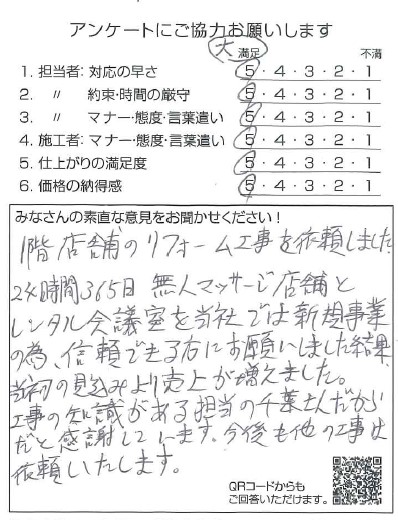 アンケートにご協力お願いします
大 満足 不満
1. 担当者: 対応の早さ 5・4・3・2・1
2. 〃 約束・時間の厳守 5・4・3・2・1
3. 〃 マナー・態度・言葉遣い 5・4・3・2・1
4. 施工者: マナー・態度・言葉遣い 5・4・3・2・1
5. 仕上がりの満足度 5・4・3・2・1
6. 価格の納得感 5・4・3・2・1
みなさんの素直な意見をお聞かせください!
1階店舗のリフォーム工事を依頼しました
24時間365日 無人マッサージ店舗と
レンタル会議室を当社では新規事業
の為、信頼できる方にお願いしました結果
当初の見込みより売上が増えました。
工事の知識がある担当の千葉さんだから
だと感謝しています。今後も他の工事は
依頼いたします。
QRコードからも
ご回答いただけます。